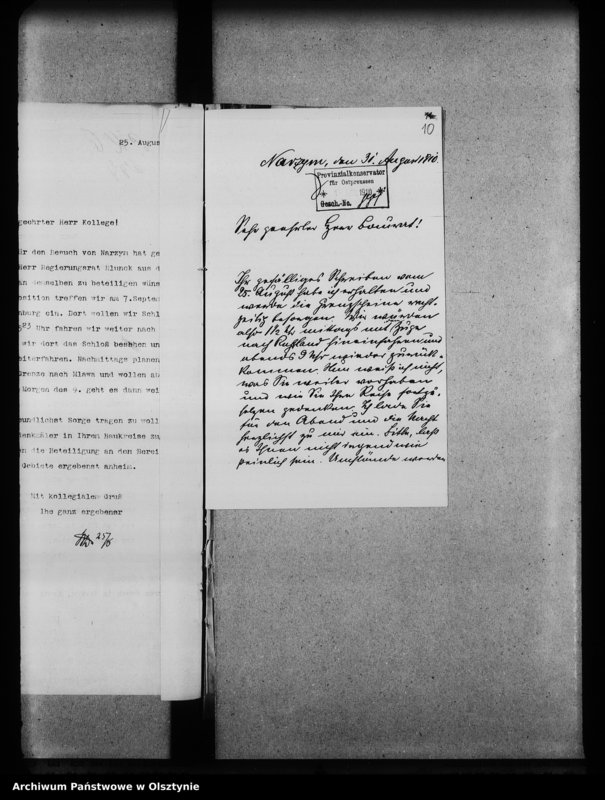 25. Augus
geehrter Herr Kollege!
r den Besuch von Narzym hat ge
Herr Regierungsrat Blunck aus d
an demselben zu beteiligen wüns
position treffen wir am 7.Septem
nburg ein. Dort wollen wir Schl
Uhr fahren wir weiter nach
wir dort das Schloß besehen un
eiterfahren. Nachmittags planen
Grenze nach Mlawa und wollen ab
Morgen des 9. geht es dann wei
undlichst Sorge tragen zu woll
denkmäler in Ihrem Baukreise zu
n die Beteiligung an den Berei
Gebiete ergebenst anheim.
Mit kollegialem Gruß
Ihr ganz ergebener
25/8
10
Narzym, den 31. August 1910.
Provinzialkonservator
für Ostpreussen
1910
Gesch.-No.
Sehr geehrter Herr Baurat!
Ihr gefälliges Schreiben vom
25. August habe ich erhalten und
werde die Grenzscheine recht-
zeitig besorgen. Wir würden
also 1½ Uhr mittags mit
nach Rußland hineinfahren und
abends 9 Uhr wieder zurück-
kommen. Nun weiß ich nicht,
was Sie weiter vorhaben
und wie Sie Ihre Reise fortzu-
setzen gedenken. Ich lade Sie
für den Abend und die Nacht
herzlichst zu mir ein. Bitte, daß
es Ihnen nicht irgendwie
peinlich sein. Umstände werden
Archiwum Państwowe w Olsztynie